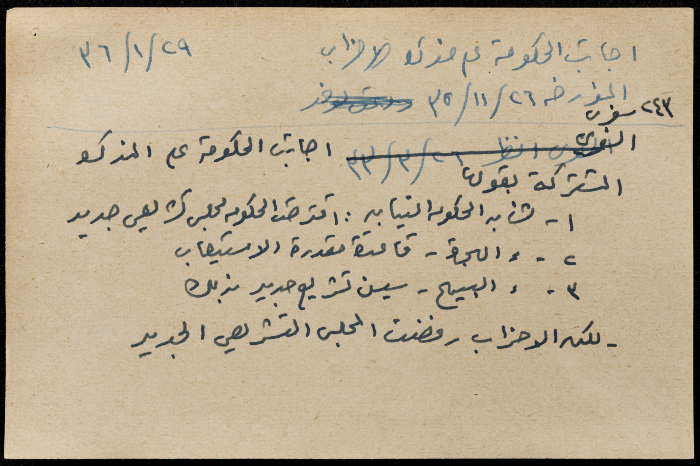 اجابت الحكومة عن مذكرة الاحزاب
٣٦/١/٢٩
المؤرخة ٣٥/١١/٢٦
٢٤٣ سفري
اجابت الحكومة على المذكرة
المشتركة بقولها
١ - بشأن الحكومة النيابية : اقترحت الحكومة مجلس تشريعي جديد
٢ - ، الهجرة - قاعدة مقدرة الاستيعاب
٣ - ، البيع - سيسن تشريع جديد بذلك
- لكن الاحزاب رفضت المجلس التشريعي الجديد